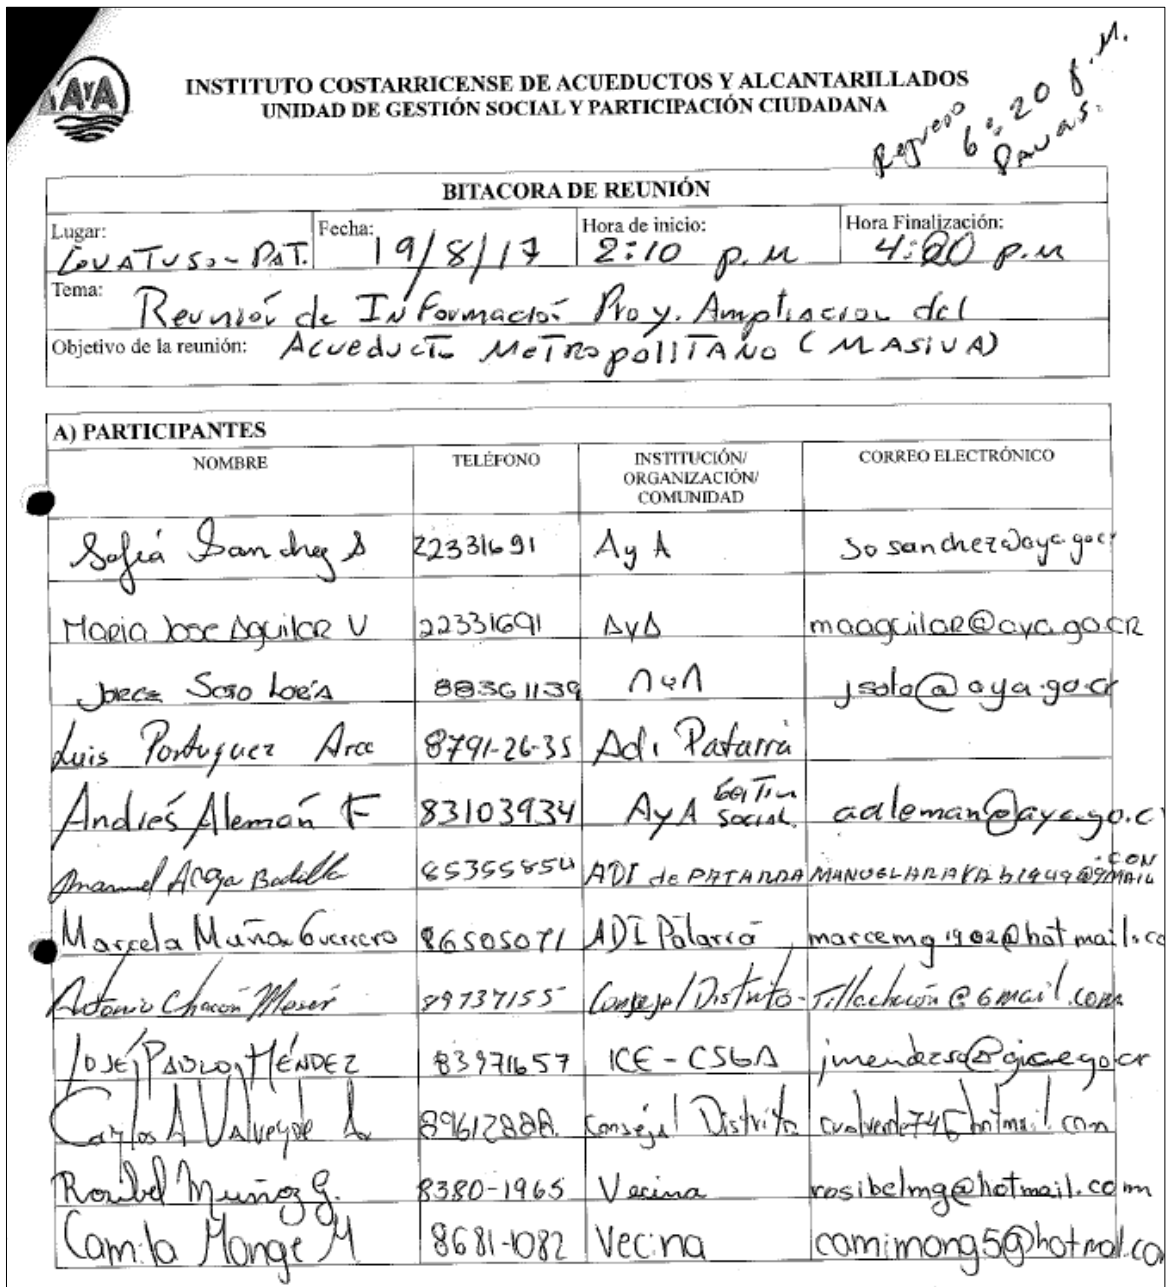 AyA
INSTITUTO COSTARRICENSE DE ACUEDUCTOS Y ALCANTARILLADOS
UNIDAD DE GESTIÓN SOCIAL Y PARTICIPACIÓN CIUDADANA
Regreso
6:20 p.M.
Pavas.
BITACORA DE REUNIÓN
Lugar: Fecha: 19/8/17 Hora de inicio: 2:10 p.m Hora Finalización: 4:00 p.m
Tema: Reunión de Información Proy. Ampliacion del
Objetivo de la reunión: Acueducto METROpolITANO (MASIVA)
A) PARTICIPANTES
NOMBRE TELÉFONO INSTITUCIÓN/ ORGANIZACIÓN/ COMUNIDAD CORREO ELECTRÓNICO
Sofía Sanchez S 22331691 AyA sosanchez@aya.go.cr
Maria Jose Aguilar V 22331691 AyA maaguilar@aya.go.cr
Jorge Soto 88361139 AyA jsoto@aya.go.cr
Luis Portuguez Arce 8791-26-35 Adi Patarrá
Andrés Alemán F 83103934 AyA Gestion Social. aaleman@aya.go.c
Manuel Badilla 85355854 ADI de PATARRA
Marcela Muñoz Guerrero 86505071 ADI Patarrá marcemg1902@hotmail.co
Antonio Chacón 89737155 Distrito
JOSÉ PABLO MÉNDEZ 83971657 ICE - CSGA
Carlos A Valverde Distrito
Rosibel Muñoz G. 8380-1965 Vecina rosibelmg@hotmail.com
Camila Monge M 8681-1082 Vecina camimong5@hotmail.co